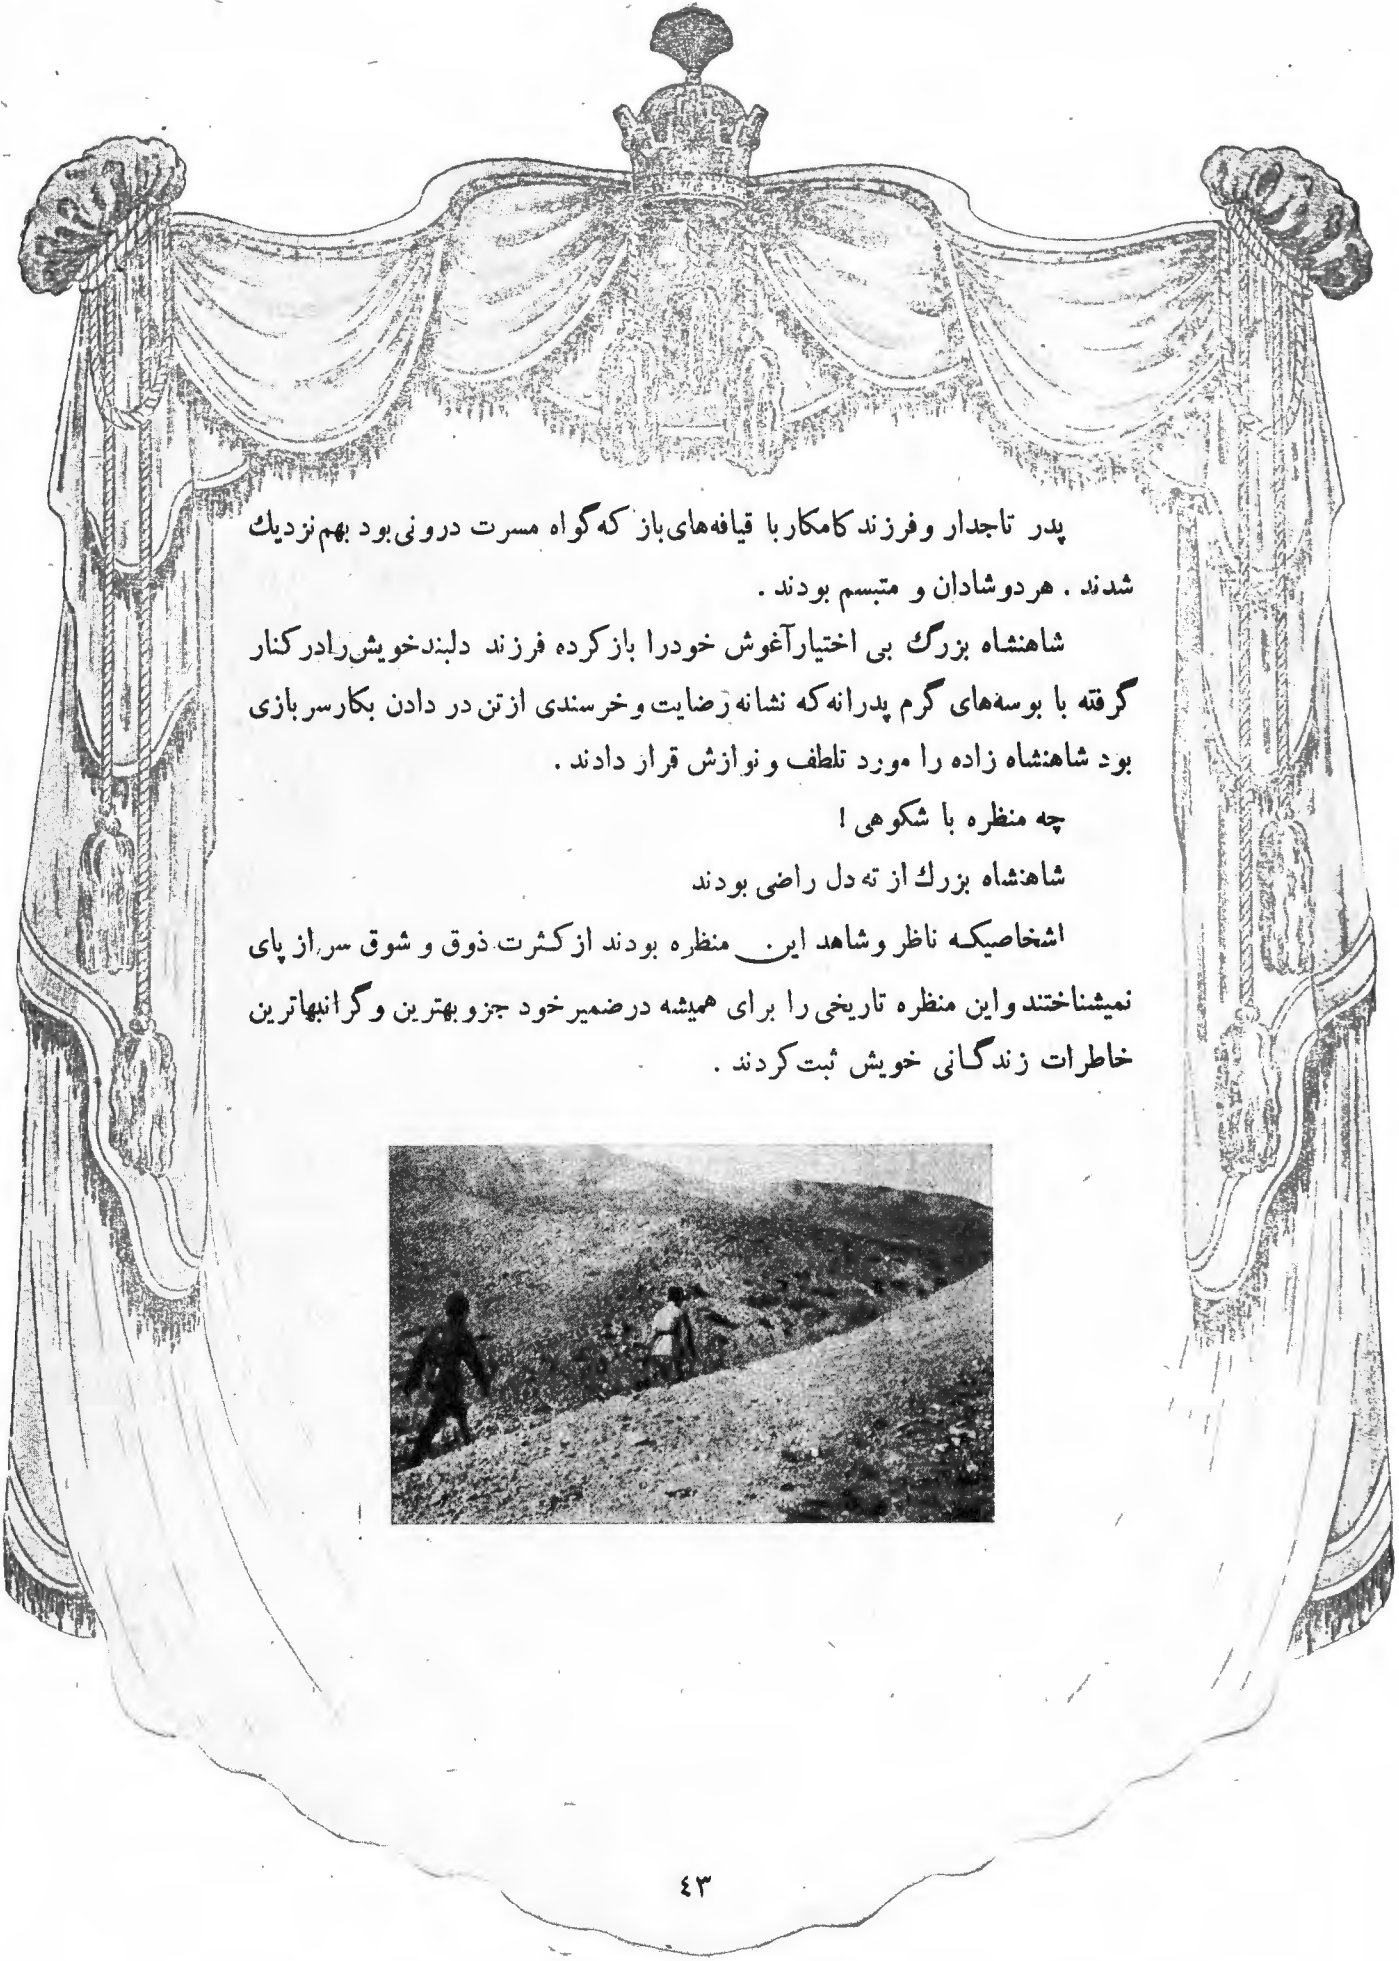 پدر تاجدار و فرزند کامکار با قیافه‌های باز که گواه مسرت درونی بود بهم نزدیك
شدند . هر دو شادان و متبسم بودند .
شاهنشاه بزرگ بی اختیار آغوش خود را باز کرده فرزند دلبند خویش را در کنار
گرفته با بوسه‌های گرم پدرانه که نشانه رضایت و خرسندی از تن در دادن بکار سربازی
بود شاهنشاه زاده را مورد تلطف و نوازش قرار دادند .
چه منظره با شکوهی !
شاهنشاه بزرك از ته دل راضی بودند
اشخاصیکه ناظر و شاهد این منظره بودند از کثرت ذوق و شوق سر از پای
نمیشناختند و این منظره تاریخی را برای همیشه در ضمیر خود جزو بهترین و گرانبهاترین
خاطرات زندگانی خویش ثبت کردند .
٤٣